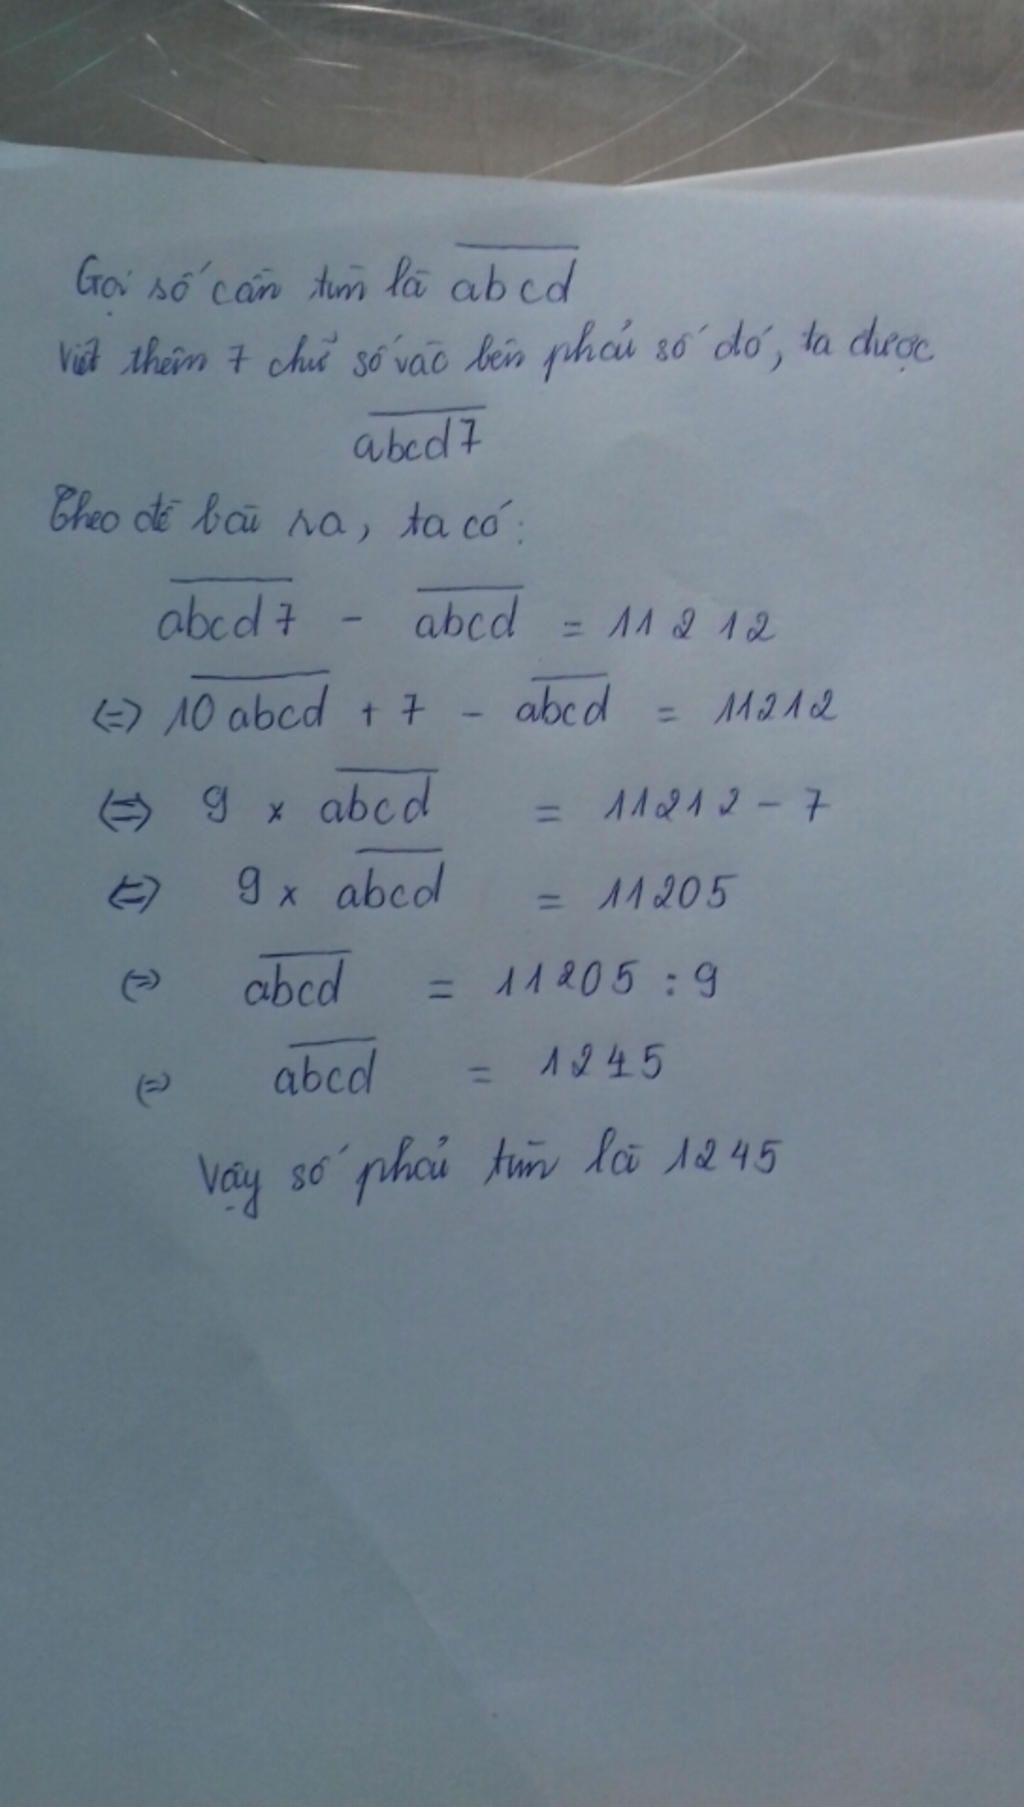 Gọi số cần tìm là abcd
Viết thêm 7 chữ số vào bên phải số đó, ta được
abcd7
Theo đề bài ra, ta có:
abcd7 - abcd = 11212
<=> 10abcd + 7 - abcd = 11212
<=> 9 x abcd = 11212 - 7
<=> 9 x abcd = 11205
<=> abcd = 11205 : 9
<=> abcd = 1245
Vậy số phải tìm là 1245